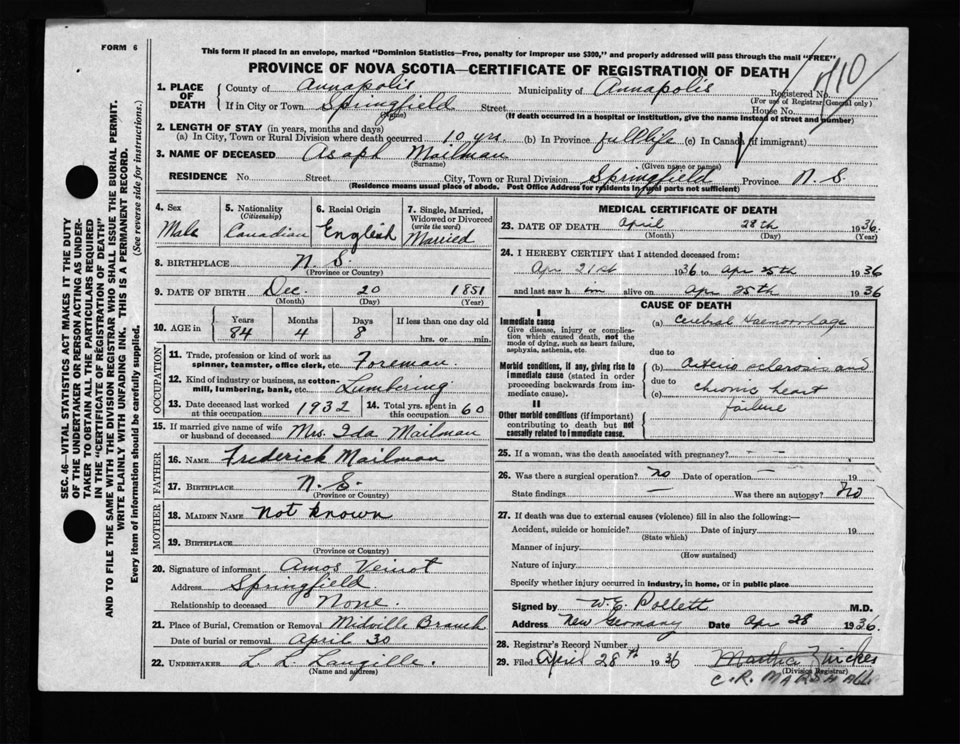 FORM 6
This form if placed in an envelope, marked "Dominion Statistics—Free, penalty for improper use $300," and properly addressed will pass through the mail "FREE"
PROVINCE OF NOVA SCOTIA—CERTIFICATE OF REGISTRATION OF DEATH
1. PLACE OF DEATH
County of Annapolis Municipality of Annapolis Registered No. 410
(For use of Registrar General only)
If in City or Town Springfield Street House No.
(Name) (If death occurred in a hospital or institution, give the name instead of street and number)
2. LENGTH OF STAY (in years, months and days)
(a) In City, Town or Rural Division where death occurred 10 yrs. (b) In Province full life (c) In Canada (if immigrant)
3. NAME OF DECEASED Asaph Mailman
(Surname) (Given name or names)
RESIDENCE No. Street City, Town or Rural Division Springfield Province N. S
(Residence means usual place of abode. Post Office Address for residents in rural parts not sufficient)
4. Sex
Male
5. Nationality
(Citizenship)
Canadian
6. Racial Origin
English
7. Single, Married, Widowed or Divorced
(write the word)
Married
8. BIRTHPLACE N. S.
(Province or Country)
9. DATE OF BIRTH Dec. 20 1851
(Month) (Day) (Year)
10. AGE in Years Months Days If less than one day old
84 4 8 hrs. or min.
OCCUPATION
11. Trade, profession or kind of work as spinner, teamster, office clerk, etc. Foreman
12. Kind of industry or business, as cotton-mill, lumbering, bank, etc. Lumbering
13. Date deceased last worked at this occupation 1932
14. Total yrs. spent in this occupation 60
15. If married give name of wife or husband of deceased Mrs. Ida Mailman
FATHER
16. NAME Frederick Mailman
17. BIRTHPLACE N. S.
(Province or Country)
MOTHER
18. MAIDEN NAME Not known
19. BIRTHPLACE
(Province or Country)
20. Signature of informant Amos Veinot
Address Springfield
Relationship to deceased None.
21. Place of Burial, Cremation or Removal Midville Branch
Date of burial or removal April 30
22. UNDERTAKER L. L. Langille.
(Name and address)
MEDICAL CERTIFICATE OF DEATH
23. DATE OF DEATH April 28th 1936.
(Month) (Day) (Year)
24. I HEREBY CERTIFY that I attended deceased from:
Apr 21st 1936 to Apr 25th 1936
and last saw h im alive on Apr 25th 1936
CAUSE OF DEATH
I
Immediate cause
Give disease, injury or complication which caused death, not the mode of dying, such as heart failure, asphyxia, asthenia, etc.
(a) Cerebral Haemorrhage
due to
Morbid conditions, if any, giving rise to immediate cause (stated in order proceeding backwards from immediate cause).
(b) Arterio sclerosis and
due to
(c) chronic heart
failure
II
Other morbid conditions (if important) contributing to death but not causally related to immediate cause.
25. If a woman, was the death associated with pregnancy? - -
26. Was there a surgical operation? no Date of operation 19
State findings — Was there an autopsy? No
27. If death was due to external causes (violence) fill in also the following:—
Accident, suicide or homicide? Date of injury 19
(State which)
Manner of injury
(How sustained)
Nature of injury
Specify whether injury occurred in industry, in home, or in public place
Signed by W. E. Pollett M.D.
Address New Germany Date Apr 28 1936.
28. Registrar's Record Number
29. Filed April 28th 1936
(Division Registrar)
C. R. MARSHALL
SEC. 46—VITAL STATISTICS ACT MAKES IT THE DUTY
OF THE UNDERTAKER OR PERSON ACTING AS UNDER-
TAKER TO OBTAIN ALL THE PARTICULARS REQUIRED
IN THE "CERTIFICATE OF REGISTRATION OF DEATH"
AND TO FILE THE SAME WITH THE DIVISION REGISTRAR WHO SHALL ISSUE THE BURIAL PERMIT.
WRITE PLAINLY WITH UNFADING INK. THIS IS A PERMANENT RECORD.
Every item of information should be carefully supplied. (See reverse side for instructions.)